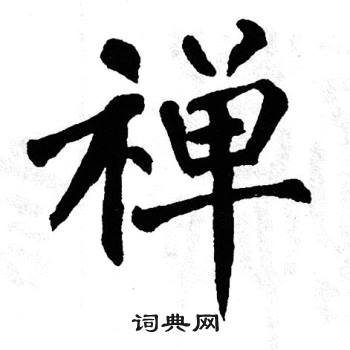 禅
词典网